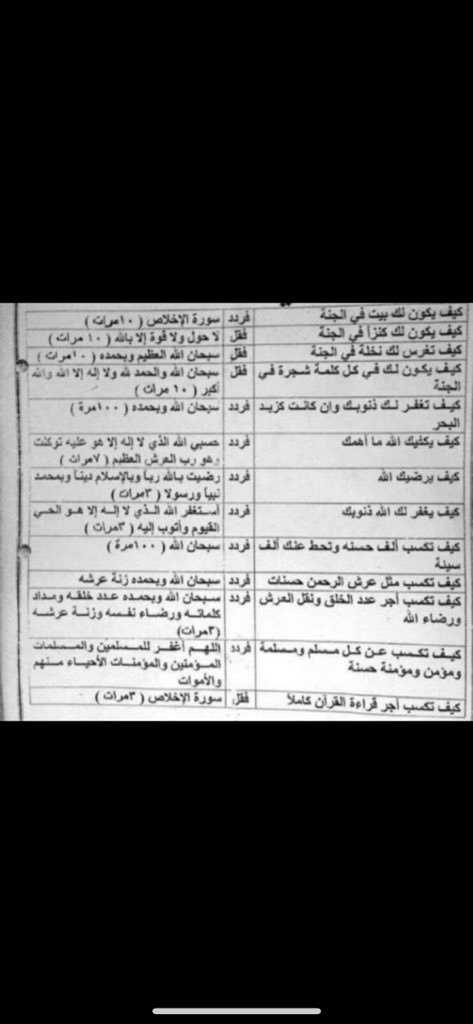 كيف يكون لك بيت في الجنة فردد سورة الإخلاص ( ١٠مرات )
كيف يكون لك كنزاً في الجنة فقل لا حول ولا قوة إلا بالله ( ١٠ مرات )
كيف تغرس لك نخلة في الجنة فقل سبحان الله العظيم وبحمده ( ١٠مرات )
كيف يكون لك في كل كلمة شجرة في فقل سبحان الله والحمد لله ولا إله إلا الله والله
الجنة أكبر ( ١٠ مرات )
كيف تغفر لك ذنوبك وان كانت كزبد فردد سبحان الله وبحمده ( ١٠٠مرة )
البحر
كيف يكفيك الله ما أهمك فردد حسبي الله الذي لا إله إلا هو عليه توكلت
وهو رب العرش العظيم ( ٧مرات )
كيف يرضيك الله فردد رضيت بالله رباً وبالإسلام ديناً وبمحمد
نبياً ورسولا ( ٣مرات )
كيف يغفر لك الله ذنوبك فردد أستغفر الله الذي لا إله إلا هو الحي
القيوم وأتوب إليه ( ٣مرات )
كيف تكسب ألف حسنه وتحط عنك ألف فردد سبحان الله ( ١٠٠مرة )
سيئة
كيف تكسب مثل عرش الرحمن حسنات فردد سبحان الله وبحمده زنة عرشه
كيف تكسب أجر عدد الخلق وثقل العرش فردد سبحان الله وبحمده عدد خلقه ومداد
ورضاء الله كلماته ورضاء نفسه وزنة عرشه
(٣مرات)
كيف تكسب عن كل مسلم ومسلمة فردد اللهم أغفر للمسلمين والمسلمات
ومؤمن ومؤمنة حسنة المؤمنين والمؤمنات الأحياء منهم
والأموات
كيف تكسب أجر قراءة القرآن كاملاً فقل سورة الإخلاص ( ٣مرات )